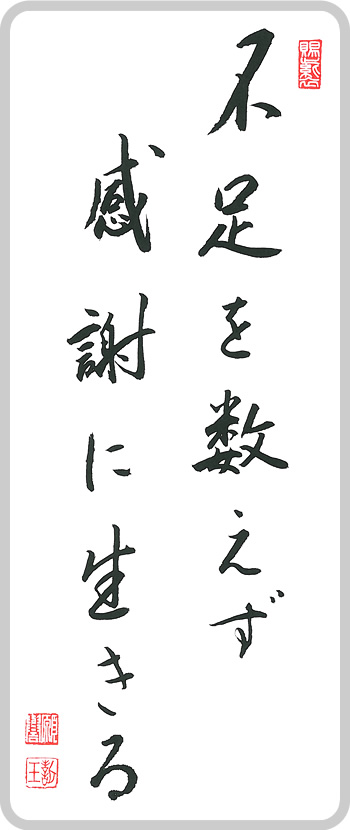 不足を数えず
感謝に生きる